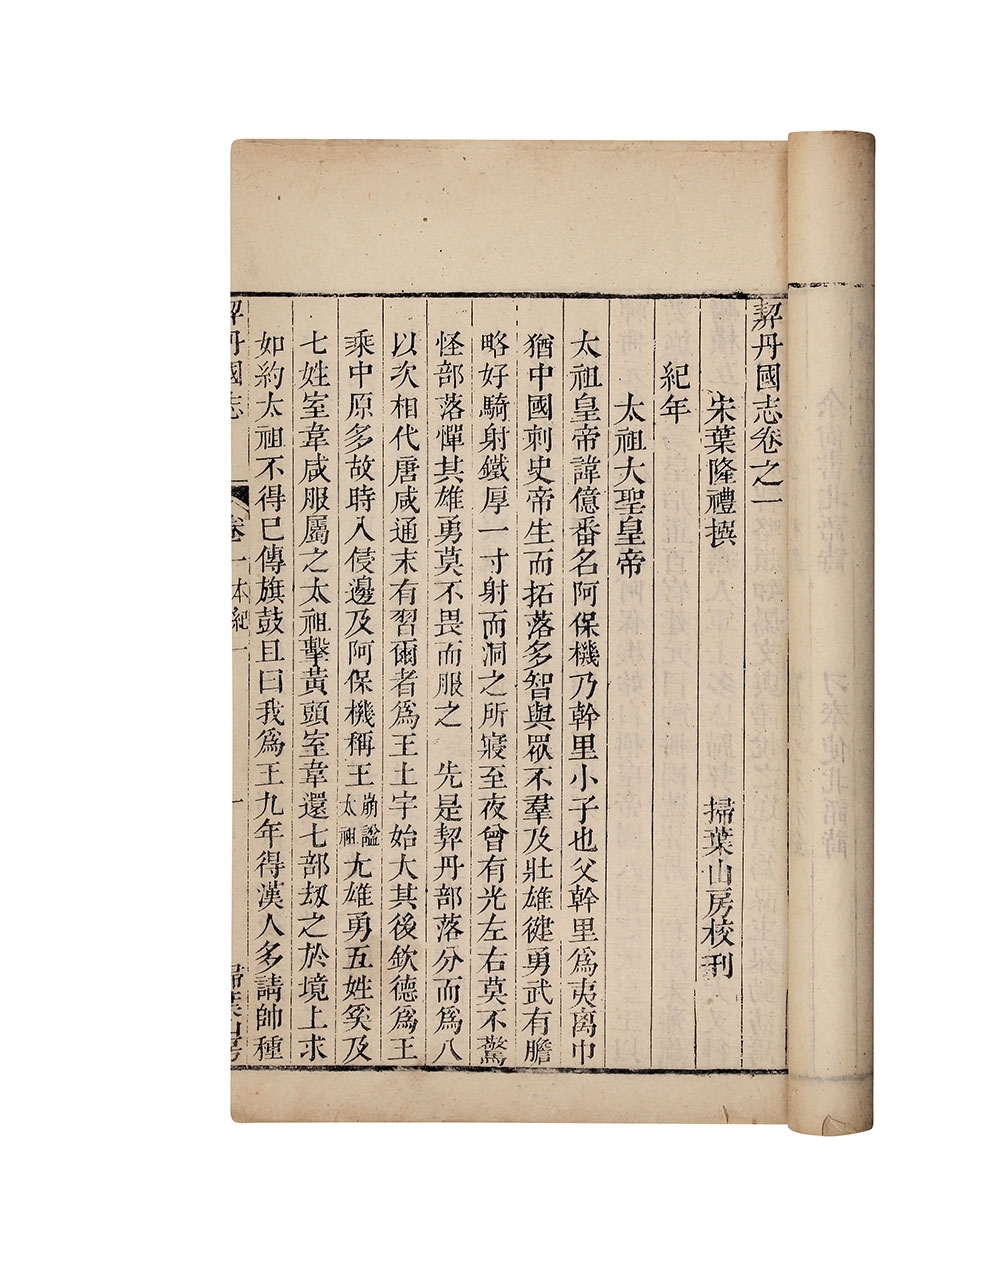 契丹國志卷之一
宋葉隆禮撰 掃葉山房校刊
紀年
太祖大聖皇帝
太祖皇帝諱億番名阿保機乃斡里小子也父斡里為夷离巾
猶中國刺史帝生而拓落多智與眾不羣及壯雄健勇武有膽
略好騎射鐵厚一寸射而洞之所寢至夜曾有光左右莫不驚
怪部落憚其雄勇莫不畏而服之 先是契丹部落分而為八
以次相代唐咸通末有習爾者為王土宇始大其後欽德為王
乘中原多故時入侵邊及阿保機稱王崩諡太祖尤雄勇五姓奚及
七姓室韋咸服屬之太祖擊黃頭室韋還七部劫之於境上求
如約太祖不得已傳旗鼓且曰我為王九年得漢人多請帥種
契丹國志 卷一本紀 一 掃葉山房